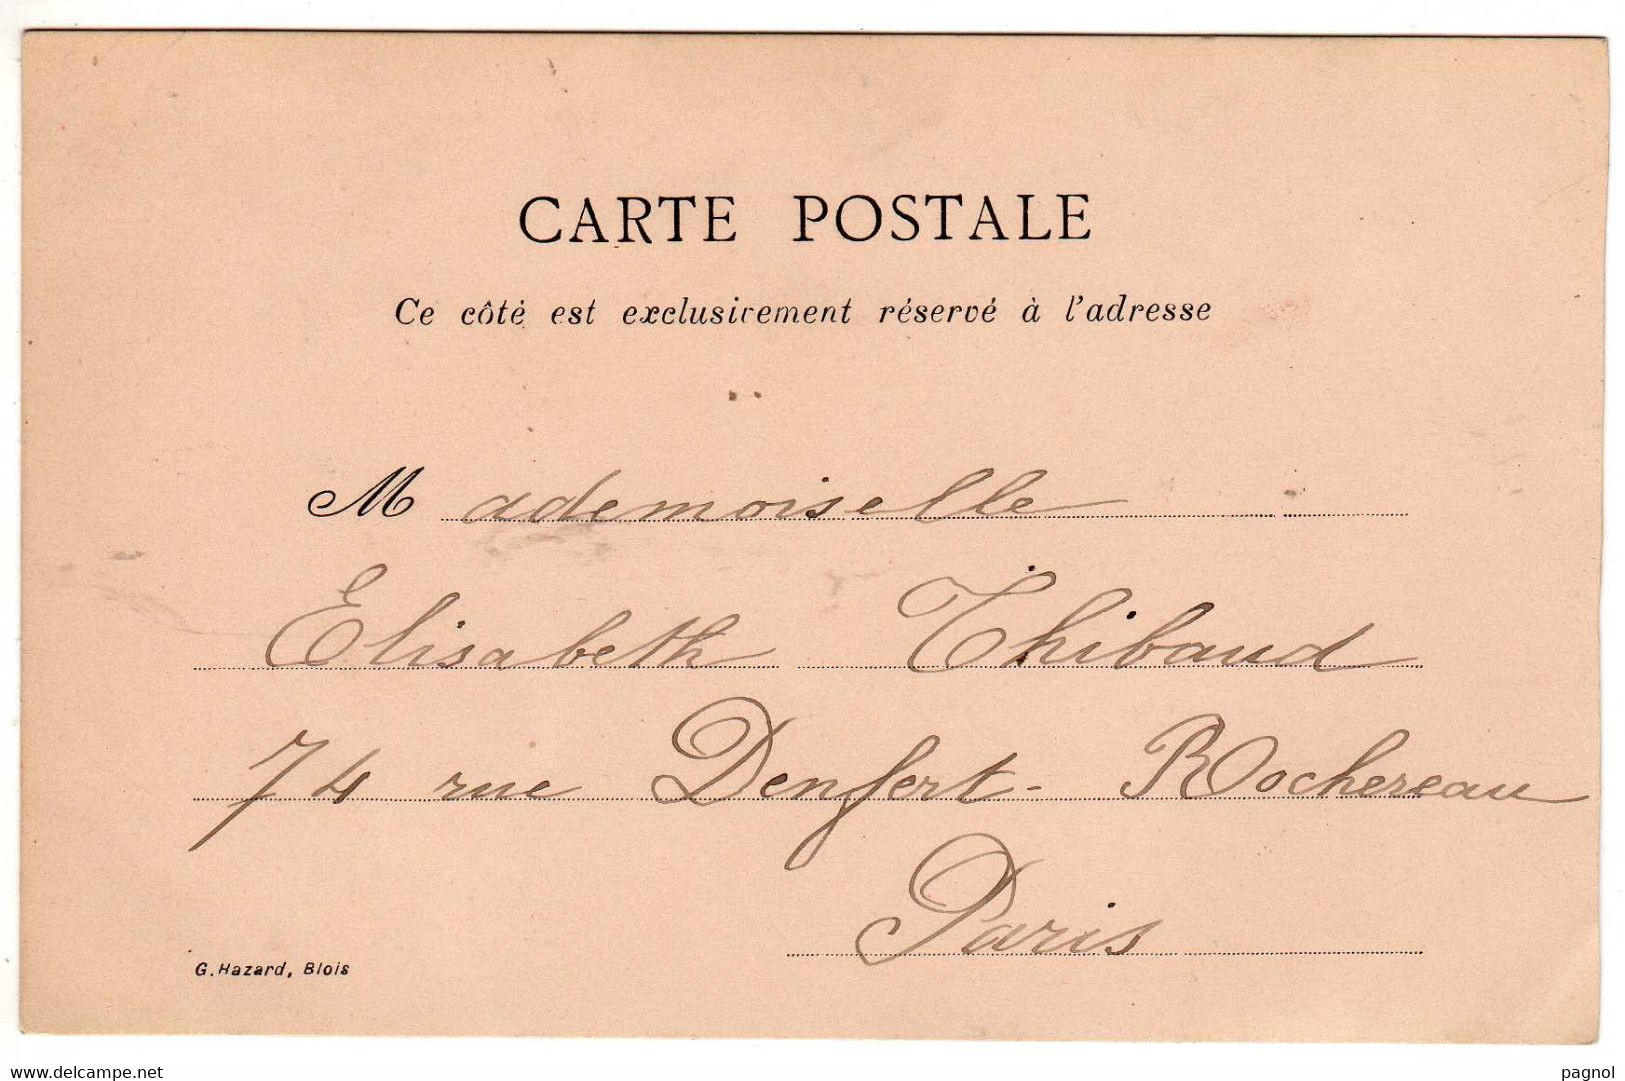 CARTE POSTALE
Ce côté est exclusivement réservé à l'adresse
Mademoiselle
Elisabeth Thibaud
74 rue Denfert-Rochereau
Paris
G. Hazard, Blois
www.delcampe.net
pagnol